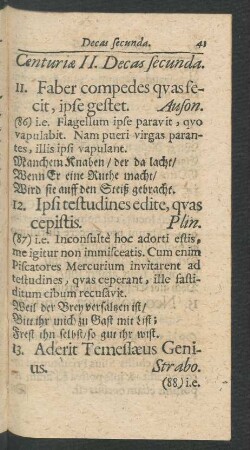 Decas secunda. 41
Centuriæ II. Decas secunda.
11. Faber compedes qvas fe-
cit, ipse gestet. Auson.
(86) i.e. Flagellum ipse paravit, qvo
vapulabit. Nam pueri virgas paran-
tes, illis ipsi vapulant.
Manchem Knaben/ der da lacht/
Wenn Er eine Ruthe macht/
Wird sie auff den Steiß gebracht.
12. Ipsi testudines edite, qvas
cepistis. Plin.
(87) i.e. Inconsultè hoc adorti estis,
me igitur non immisceatis. Cum enim
Piscatores Mercurium invitarent ad
testudines, qvas ceperant, ille fasti-
ditum cibum recusavit.
Weil der Brey versaltzen ist/
Bittt ihr mich zu Gast mit List;
Frest ihn selbst/ so gut ihr wist.
13. Aderit Temesæus Geni-
us. Strabo.
(88) i.e.